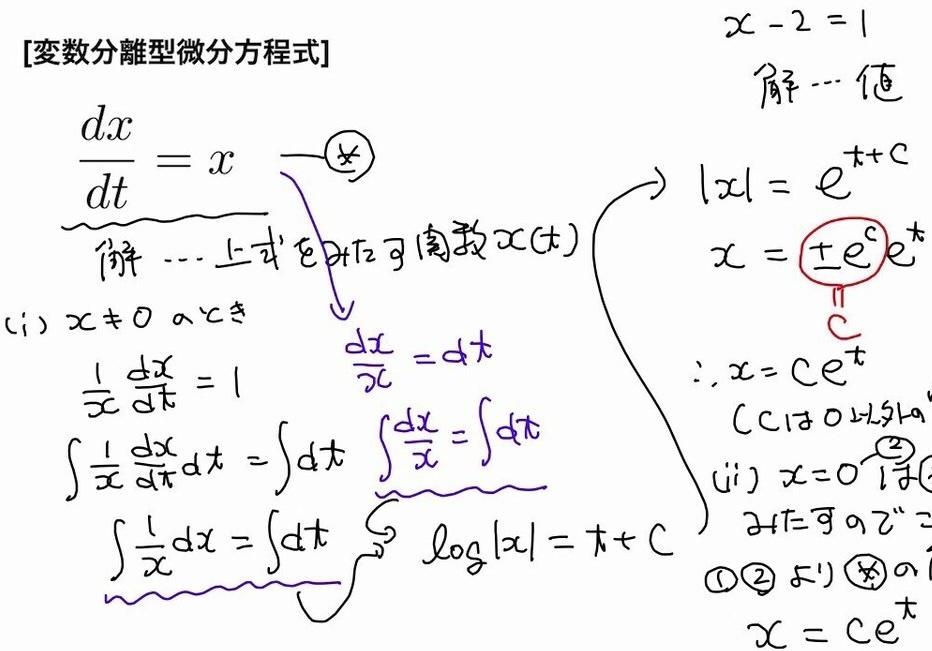 [変数分離型微分方程式]
dx/dt = x —⊛
解 … 上式をみたす関数 x(t)
(i) x≠0 のとき
1/x dx/dt = 1
∫ 1/x dx/dt dt = ∫dt
∫ 1/x dx = ∫dt
dx/x = dt
∫ dx/x = ∫dt
log|x| = t + C
x - 2 = 1
解 … 値
|x| = e^{t+C}
x = ±e^C e^t
= C
∴ x = Ce^t
(Cは0以外の
(ii) x=0 は
②
みたすので
①② より ⊛ の
x = Ce^t